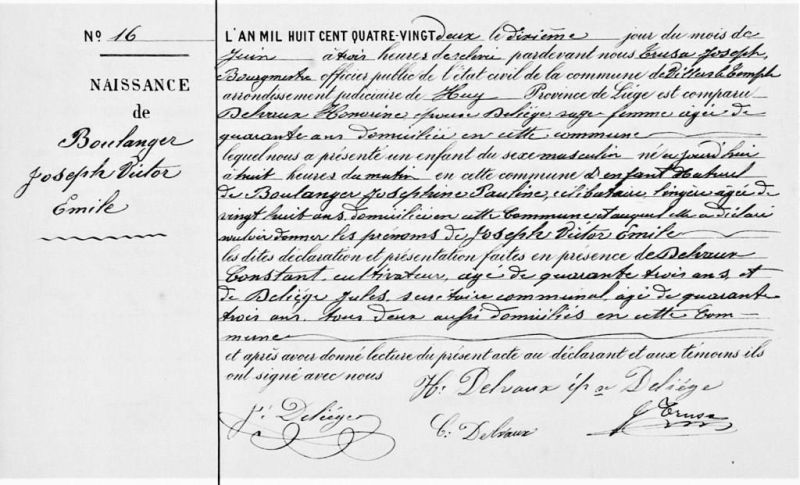 No 16
NAISSANCE
de
Boulanger
Joseph Victor
Emile
L'AN MIL HUIT CENT QUATRE-VINGT deux le dixième jour du mois de
Juin à trois heures de relevée pardevant nous Crusa Joseph,
Bourgmestre officier public de l'état civil de la commune de Villers le Temple
arrondissement judiciaire de Huy Province de Liége est comparu
Delvaux Honorine épouse Deliége sage-femme âgée de
quarante ans domiciliée en cette commune
lequel nous a présenté un enfant du sexe masculin né aujourd'hui
à huit heures du matin en cette commune enfant naturel
de Boulanger Joséphine Pauline, célibataire, lingère âgée de
vingt huit ans domiciliée en cette Commune et auquel elle a déclaré
vouloir donner les prénoms de Joseph Victor Emile
les dites déclaration et présentation faites en présence de Delvaux
Constant, cultivateur, âgé de quarante trois ans, et
de Deliége Jules, secrétaire communal âgé de quarante
trois ans, tous deux aussi domiciliés en cette Com-
mune
et après avoir donné lecture du présent acte au déclarant et aux témoins ils
ont signé avec nous
H. Delvaux ép se Deliége
Js Deliége
C. Delvaux
J Crusa